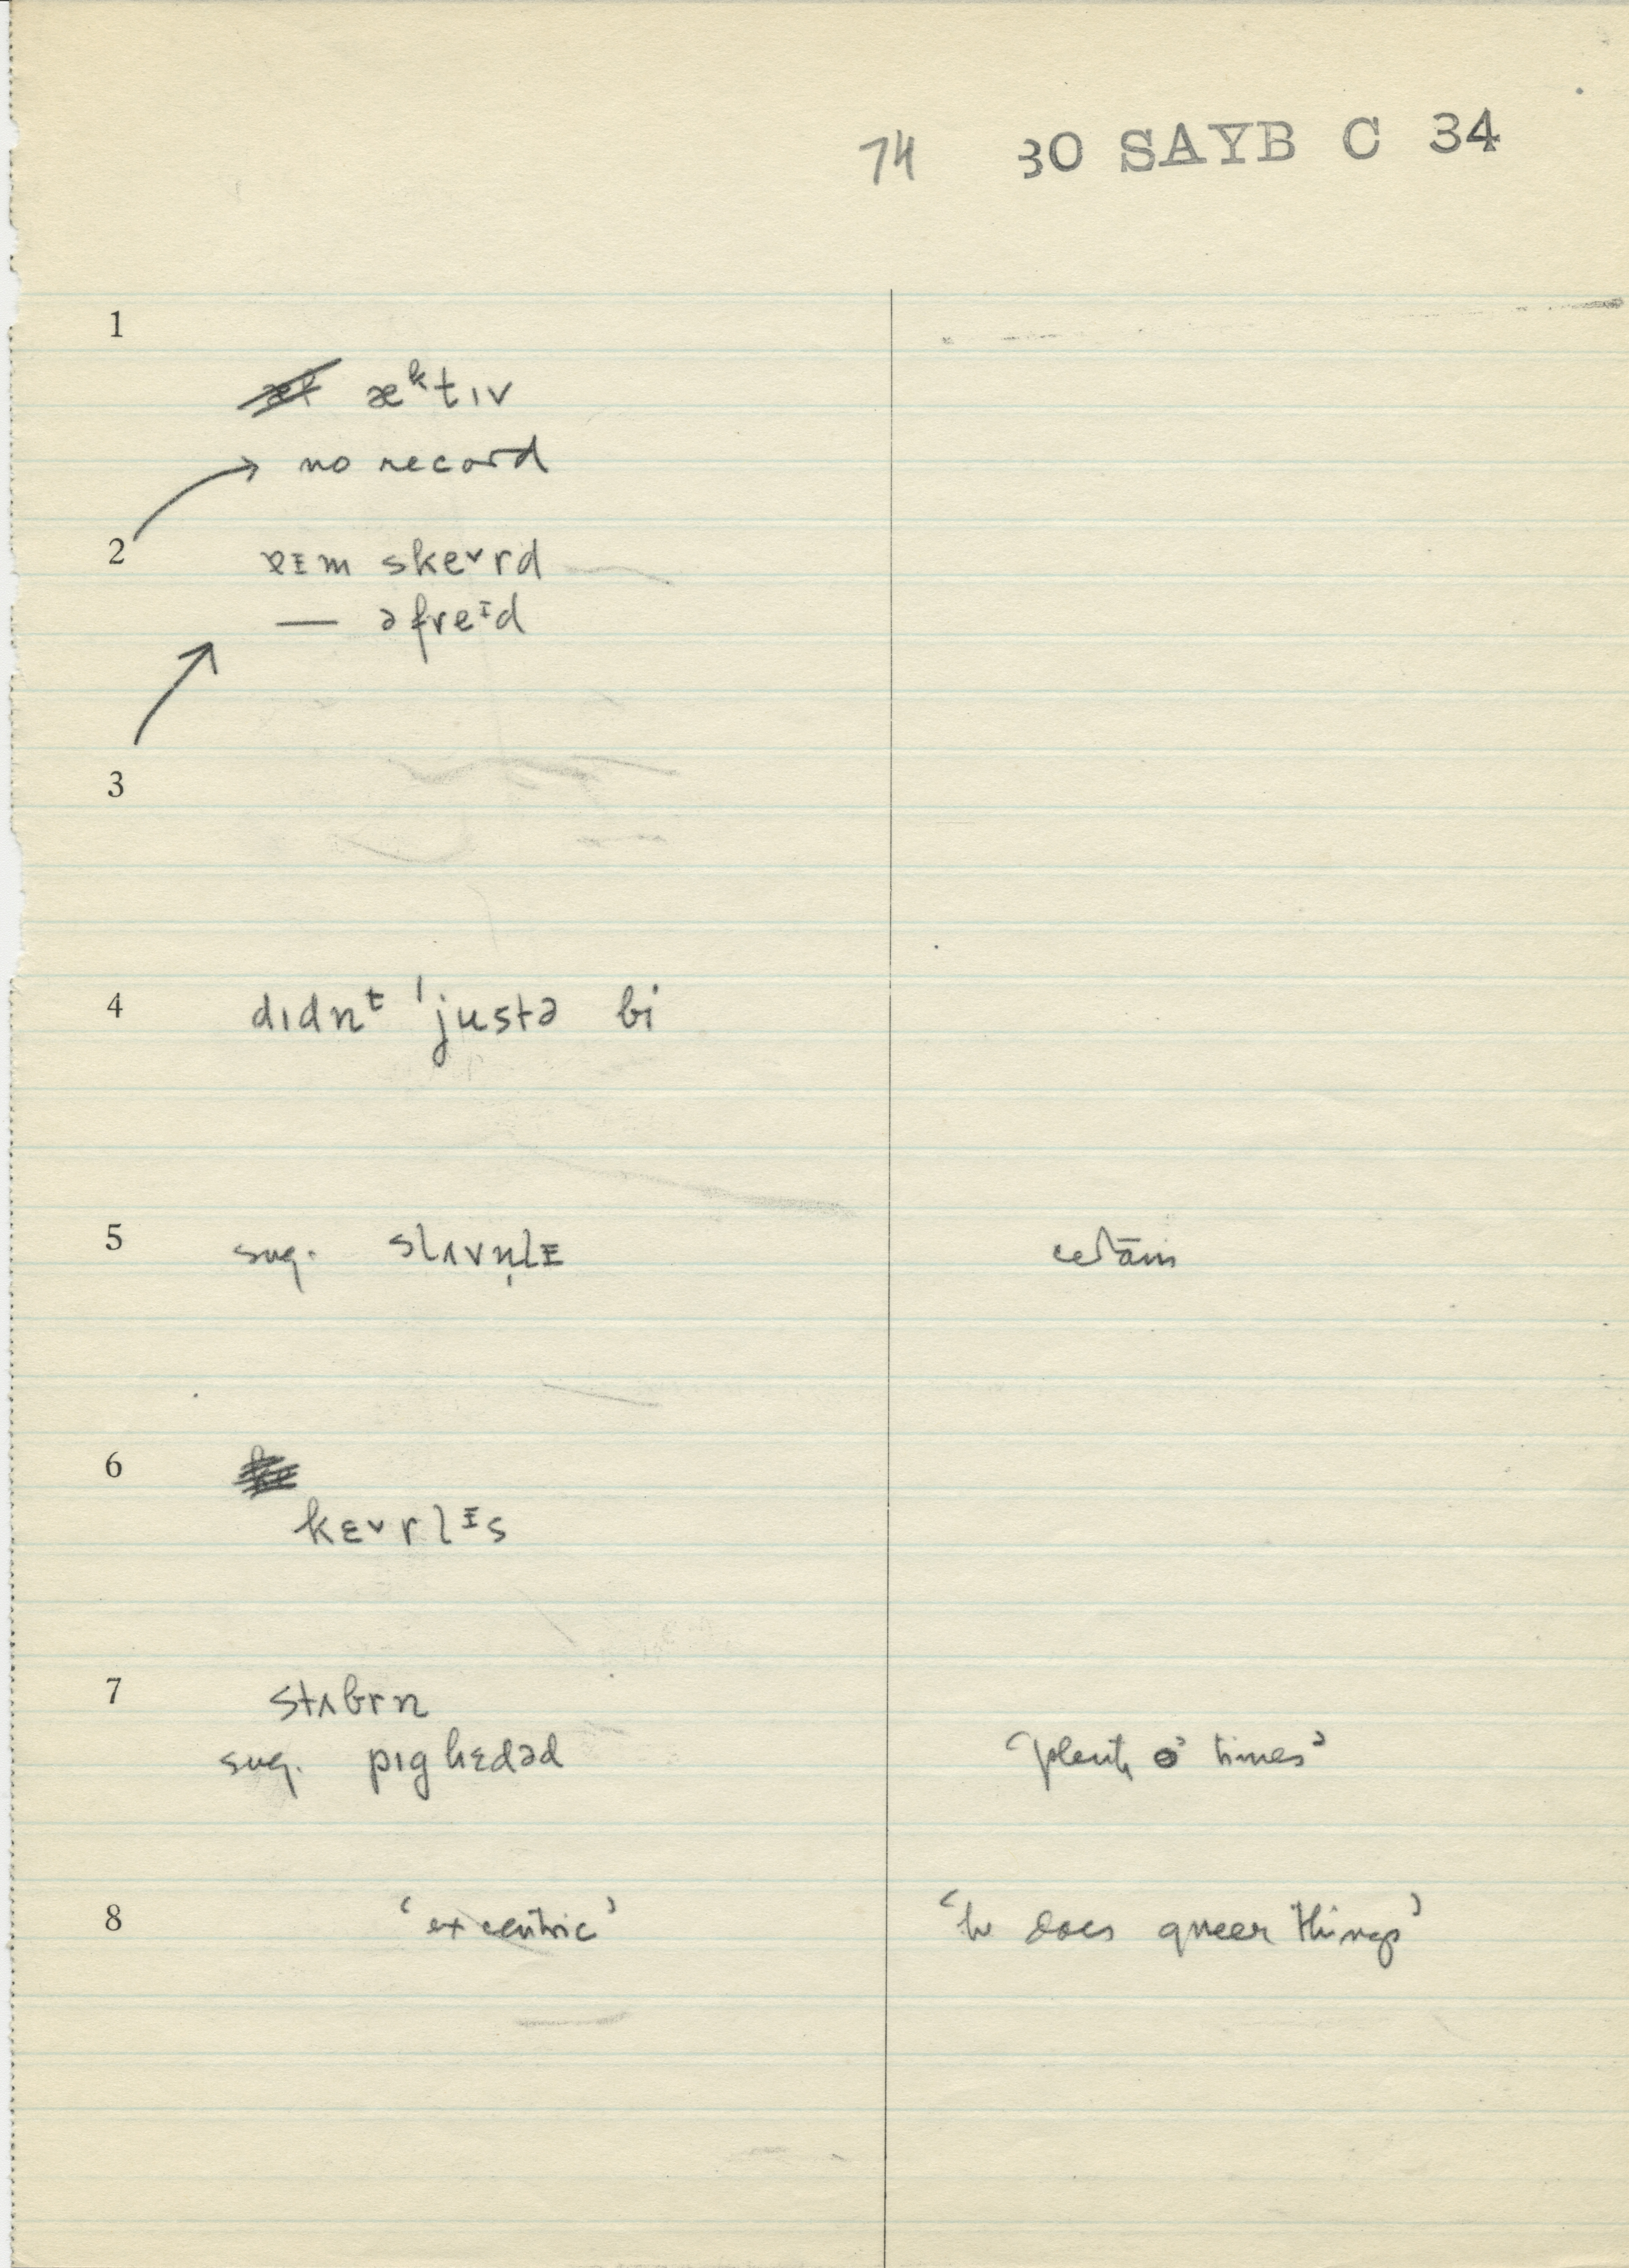 74 30 SAYB C 34
1
æᵏtɪv
→ no record
2 ɐɪm skeᵛrd
— əfreᶦd
3
4 dɪdnᵗ ˈjustə bi
5 sug. slʌvn̩lɪ
6
kɛᵛrlᶦs
7 stʌbrn
sug. pɪghɛdəd ‘plenty o' times’
8 ‘excentric’ ‘he does queer things’